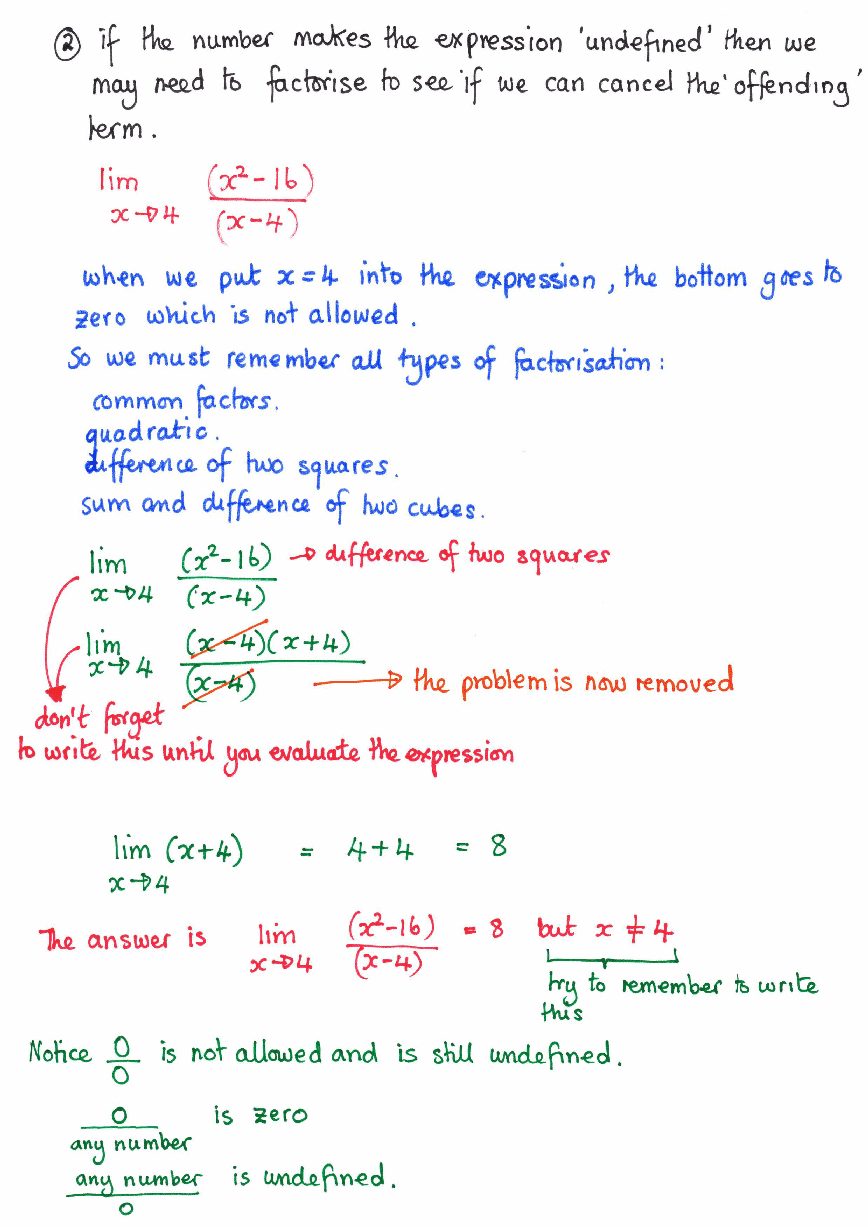 ② if the number makes the expression 'undefined' then we
may need to factorise to see if we can cancel the 'offending'
term.
lim (x²-16)
x→4 (x-4)
when we put x=4 into the expression, the bottom goes to
zero which is not allowed.
So we must remember all types of factorisation:
common factors.
quadratic.
difference of two squares.
sum and difference of two cubes.
lim (x²-16) → difference of two squares
x→4 (x-4)
lim (x-4)(x+4)
x→4 (x-4) → the problem is now removed
don't forget
to write this until you evaluate the expression
lim (x+4) = 4+4 = 8
x→4
The answer is lim (x²-16) = 8 but x ≠ 4
x→4 (x-4)
try to remember to write
this
Notice 0/0 is not allowed and is still undefined.
0 is zero
any number
any number is undefined.
0